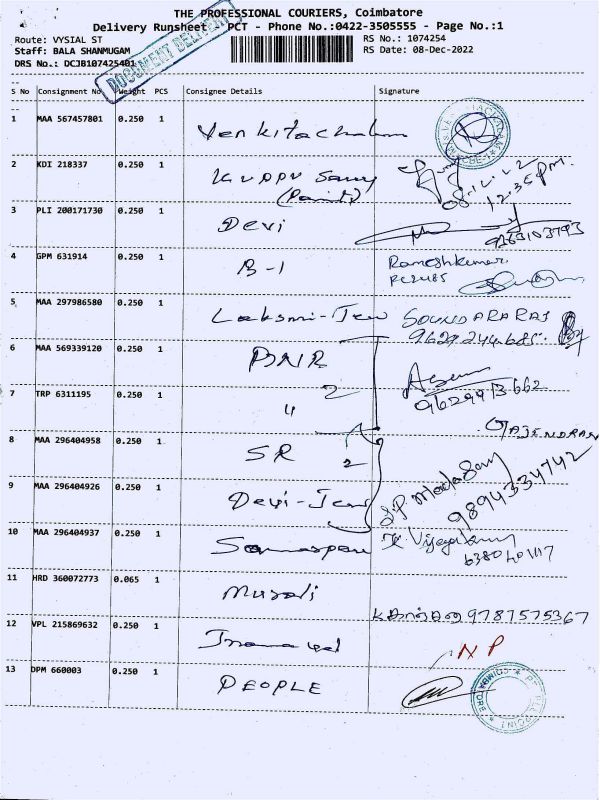 THE PROFESSIONAL COURIERS, Coimbatore
Delivery Runsheet PCT - Phone No.:0422-3505555 - Page No.:1
Route: VYSIAL ST
RS No.: 1074254
Staff: BALA SHANMUGAM
RS Date: 08-Dec-2022
DRS No.: DCJB107425401
DOCUMENT DELIVERY
S No Consignment No Weight PCS Consignee Details Signature
1 MAA 567457801 0.250 1 Venkitachalam
2 KDI 218337 0.250 1 Kuppu Samy
(Paints)
12.35 pm
3 PLI 200171730 0.250 1 Devi
9263103793
4 GPM 631914 0.250 1 B-1 Rameshkumar
PC2485
5 MAA 297986580 0.250 1 Laksmi-Jew SOUNDARARAJ
9629244685
6 MAA 569339120 0.250 1 BNR
2
7 TRP 6311195 0.250 1 "
9629913662
GAJENDRAN
8 MAA 296404958 0.250 1 SR 2
9 MAA 296404926 0.250 1 Devi-Jew
9894334742
10 MAA 296404937 0.250 1
11 HRD 360072773 0.065 1 Murali
9787575367
12 VPL 215869632 0.250 1
NP
13 DPM 660003 0.250 1 PEOPLE